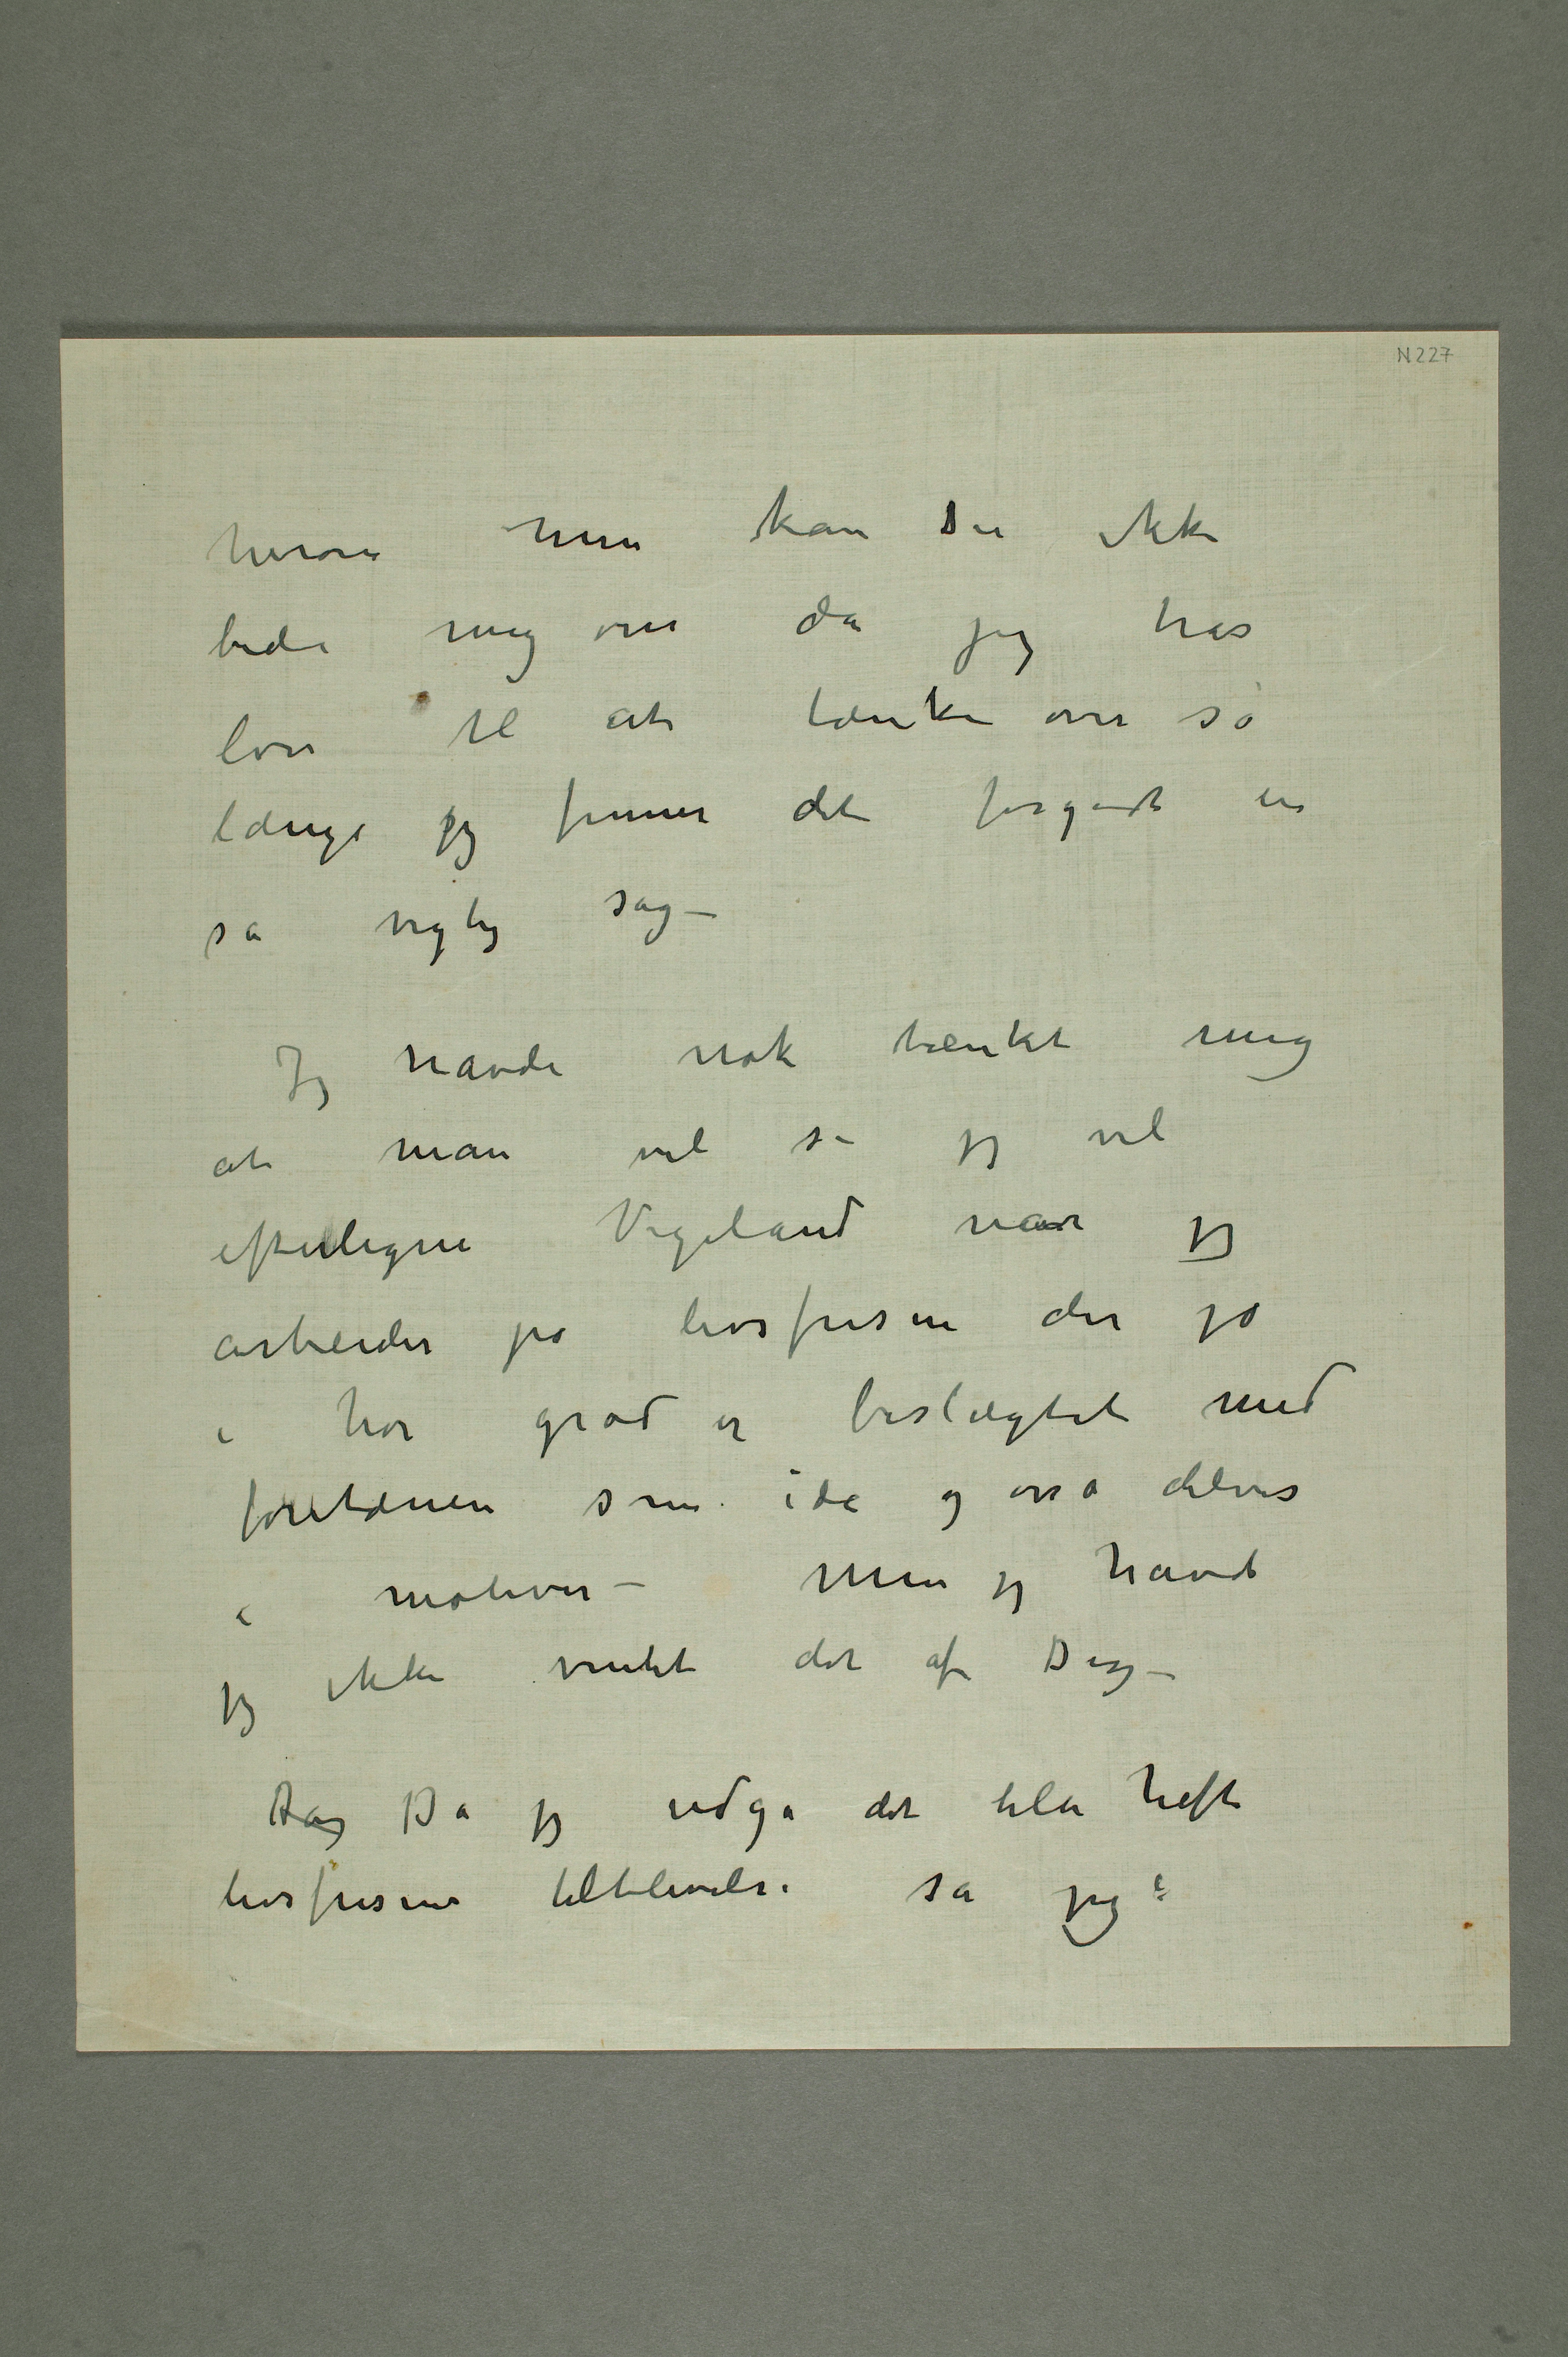 N 227
herom men kan Du ikke
bede mig om da jeg har
lov til at tænke over så
længe jeg finner det forgodt en
så vigtig sag –
Jeg havde nok tænkt mig
at man vil si jeg vil
efterligne Vigeland når jeg
arbeider på livsfrisen der jo
i høi grad er beslægtet med
fontænen som ide og også delvis
i motiver – Men jeg havde
jeg ikke ventet det af Dig –
Da jeg udga det lille hefte
livsfrisens tilblivelse sa jeg: